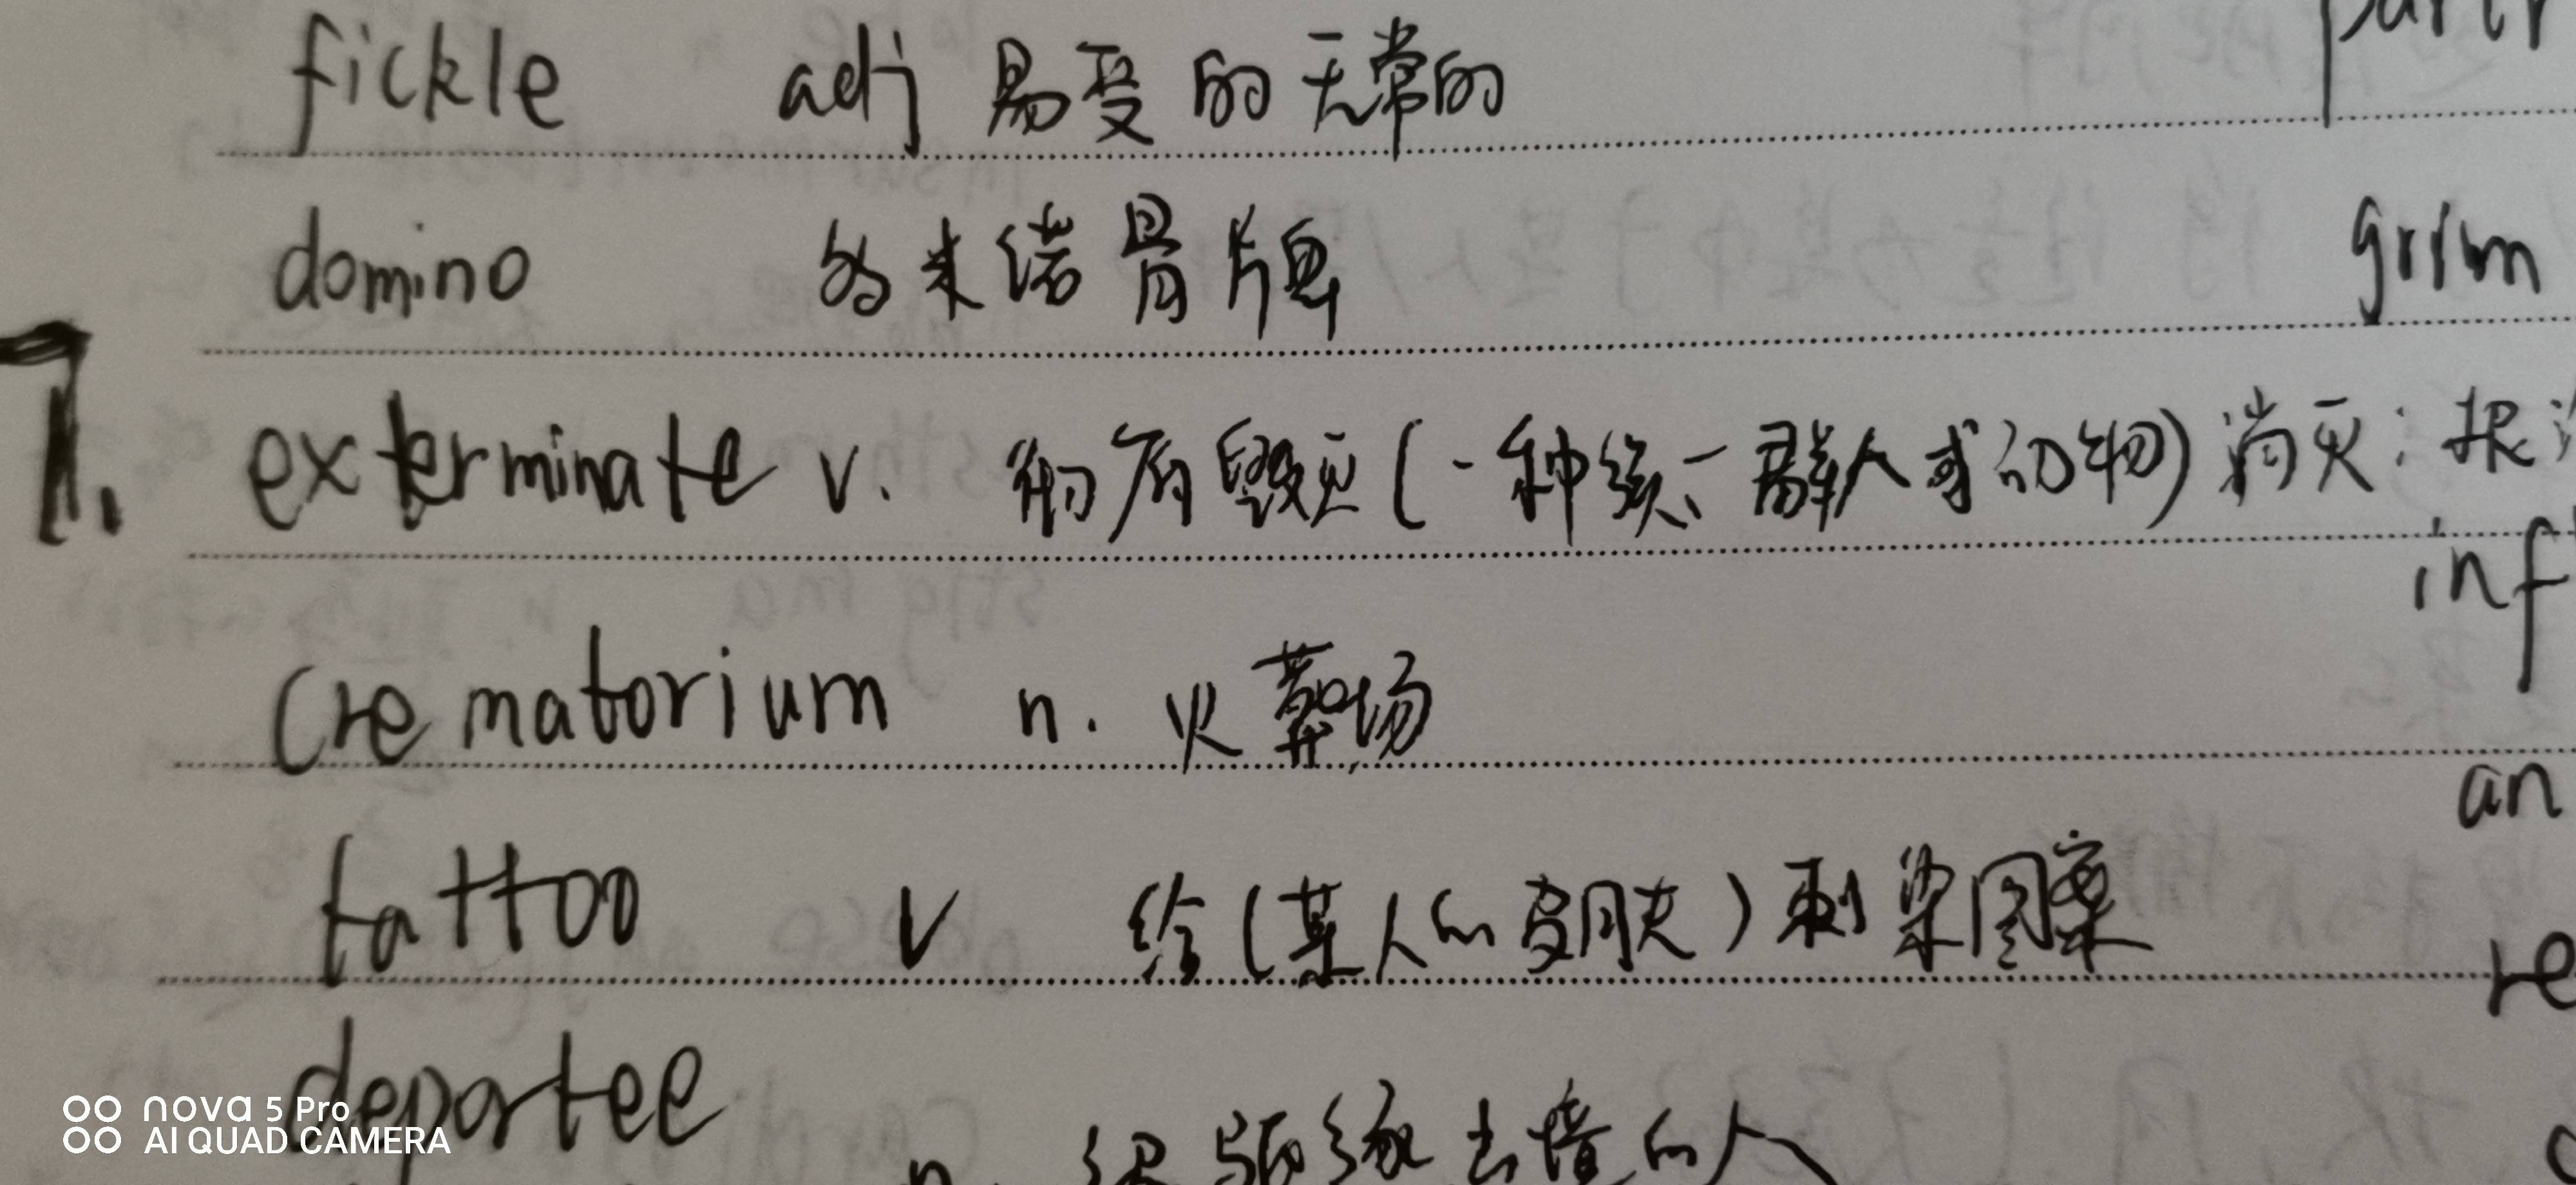 fickle adj 易变的 无常的
domino 多米诺骨牌 grim
7. exterminate v. 彻底毁灭(一种族、一群人或动物)消灭; 根
inf
crematorium n. 火葬场
an
tattoo v 给(某人的皮肤)刺染图案
re
deportee
n. 被驱逐出境的人
nova 5 Pro
AI QUAD CAMERA